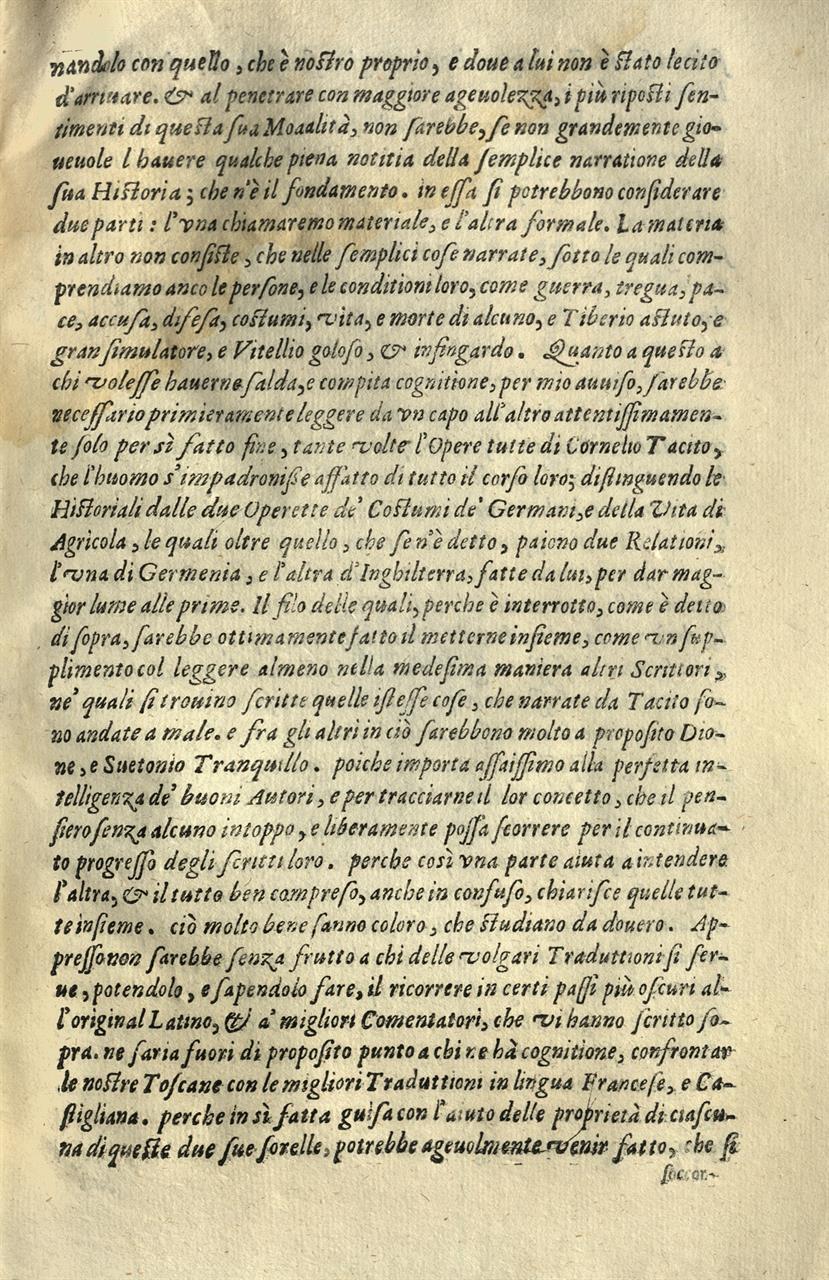 nandolo con quello, che è nostro proprio, e doue a lui non è stato lecito
d'arriuare. & al penetrare con maggiore ageuolezza, i più riposti sen-
timenti di questa sua Moaalità, non sarebbe, se non grandemente gio-
ueuole l hauere qualche piena notitia della semplice narratione della
sua Historia; che n'è il fondamento. in essa si potrebbono considerare
due parti: l'vna chiamaremo materiale, e l'altra formale. La materia
in altro non consiste, che nelle semplici cose narrate, sotto le quali com-
prendiamo anco le persone, e le conditioni loro, come guerra, tregua, pa-
ce, accusa, difesa, costumi, vita, e morte di alcuno, e Tiberio astuto, e
gran simulatore, e Vitellio goloso, & infingardo. Quanto a questo a
chi volesse hauerne salda, e compita cognitione, per mio auuiso, sarebbe
necessario primieramente leggere da vn capo all'altro attentissimamen-
te solo per sì fatto fine, tante volte l'Opere tutte di Cornelio Tacito,
che l'huomo s'impadronisse affatto di tutto il corso loro; distinguendo le
Historiali dalle due Operette de' Costumi de' Germani, e della Vita di
Agricola, le quali oltre quello, che se n'è detto, paiono due Relationi,
l'vna di Germenia, e l'altra d'Inghilterra, fatte da lui, per dar mag-
gior lume alle prime. Il filo delle quali, perche è interrotto, come è detto
di sopra, sarebbe ottimamente fatto il metterne insieme, come vn sup-
plimento col leggere almeno nella medesima maniera altri Scrittori,
ne' quali si trouino scritte quelle istesse cose, che narrate da Tacito so-
no andate a male. e fra gli altri in ciò sarebbono molto a proposito Dio-
ne, e Suetonio Tranquillo. poiche importa assaissimo alla perfetta in-
telligenza de' buoni Autori, e per tracciarne il lor concetto, che il pen-
siero senza alcuno intoppo, e liberamente possa scorrere per il continua-
to progresso degli scritti loro. perche così vna parte aiuta a intendere
l'altra, & il tutto ben compreso, anche in confuso, chiarisce quelle tut-
te insieme. ciò molto bene fanno coloro, che studiano da douero. Ap-
presso non sarebbe senza frutto a chi delle volgari Traduttioni si ser-
ue, potendolo, e sapendolo fare, il ricorrere in certi passi più oscuri al-
l'original Latino, & a' migliori Comentatori, che vi hanno scritto so-
pra. ne saria fuori di proposito punto a chi ne hà cognitione, confrontar
le nostre Toscane con le migliori Traduttioni in lingua Francese, e Ca-
stigliana. perche in sì fatta guisa con l'aiuto delle proprietà di ciascu-
na di queste due sue sorelle, potrebbe ageuolmente venir fatto, che si
soccor-